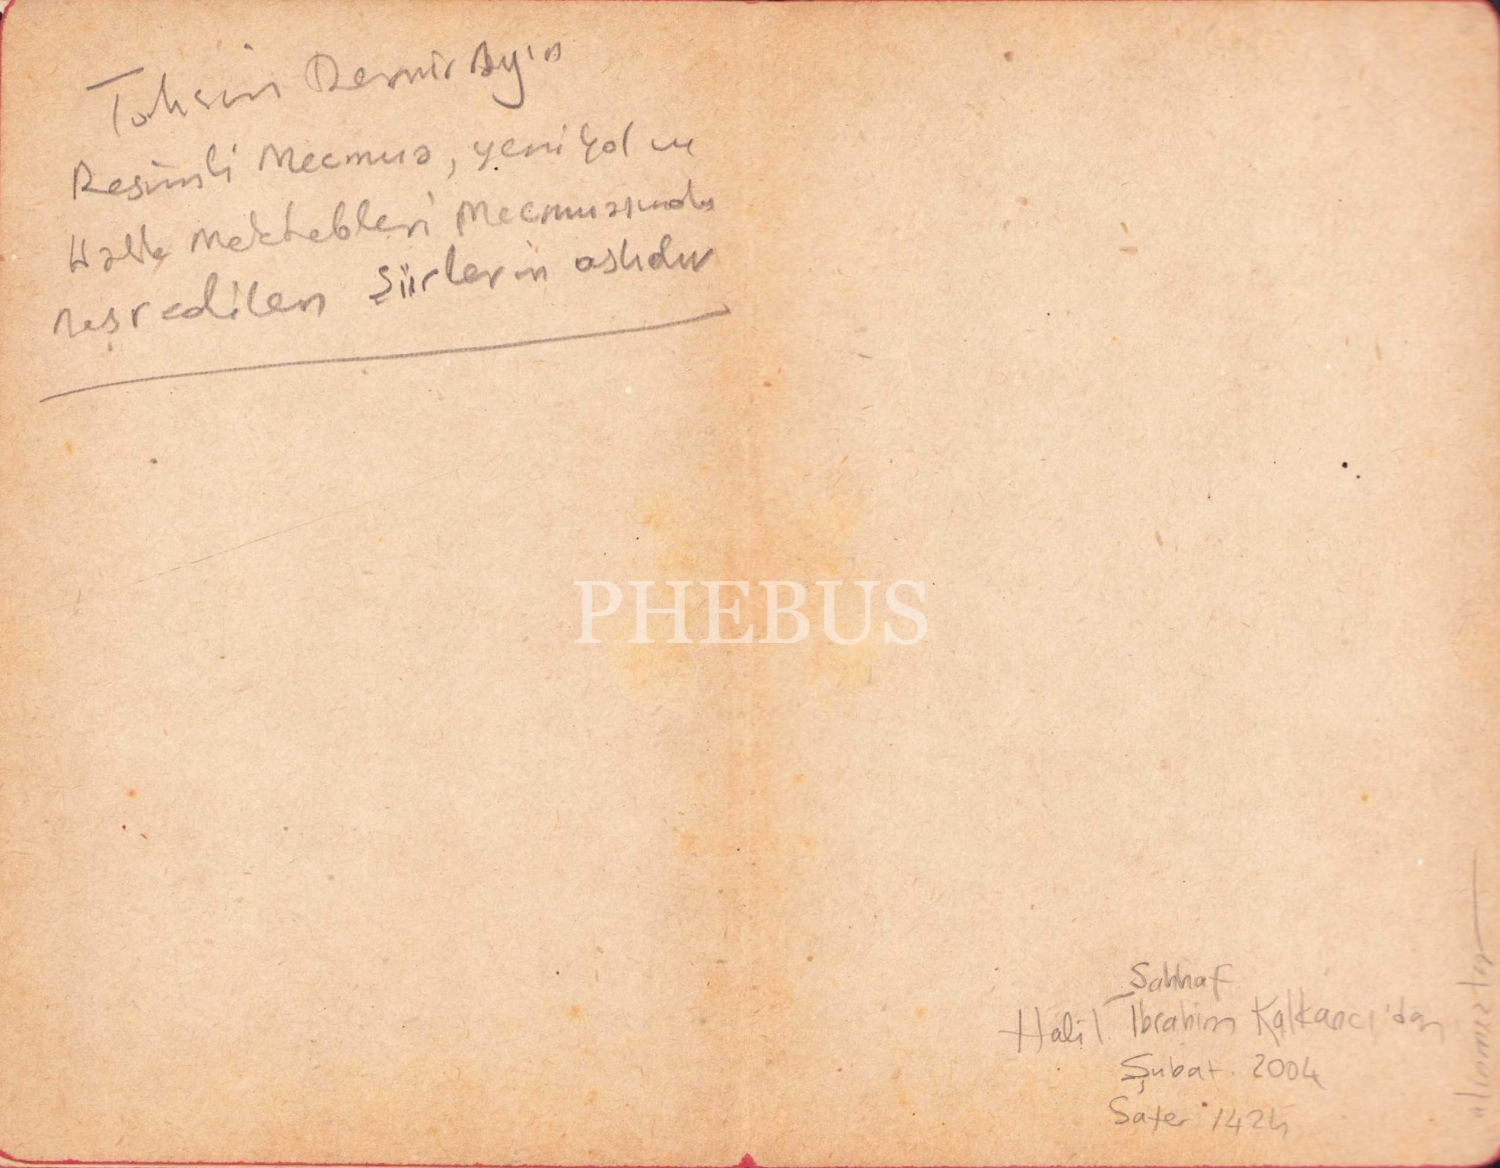 Tahsin Demirayın
Resimli Mecmua, yeni Yol ve
Halk Mektebleri Mecmuasında
neşredilen Şiirlerin aslıdır
PHEBUS
Sahhaf
Halil İbrahim Kalkancı'dan
Şubat. 2004
Safer 1424
alınmıştır